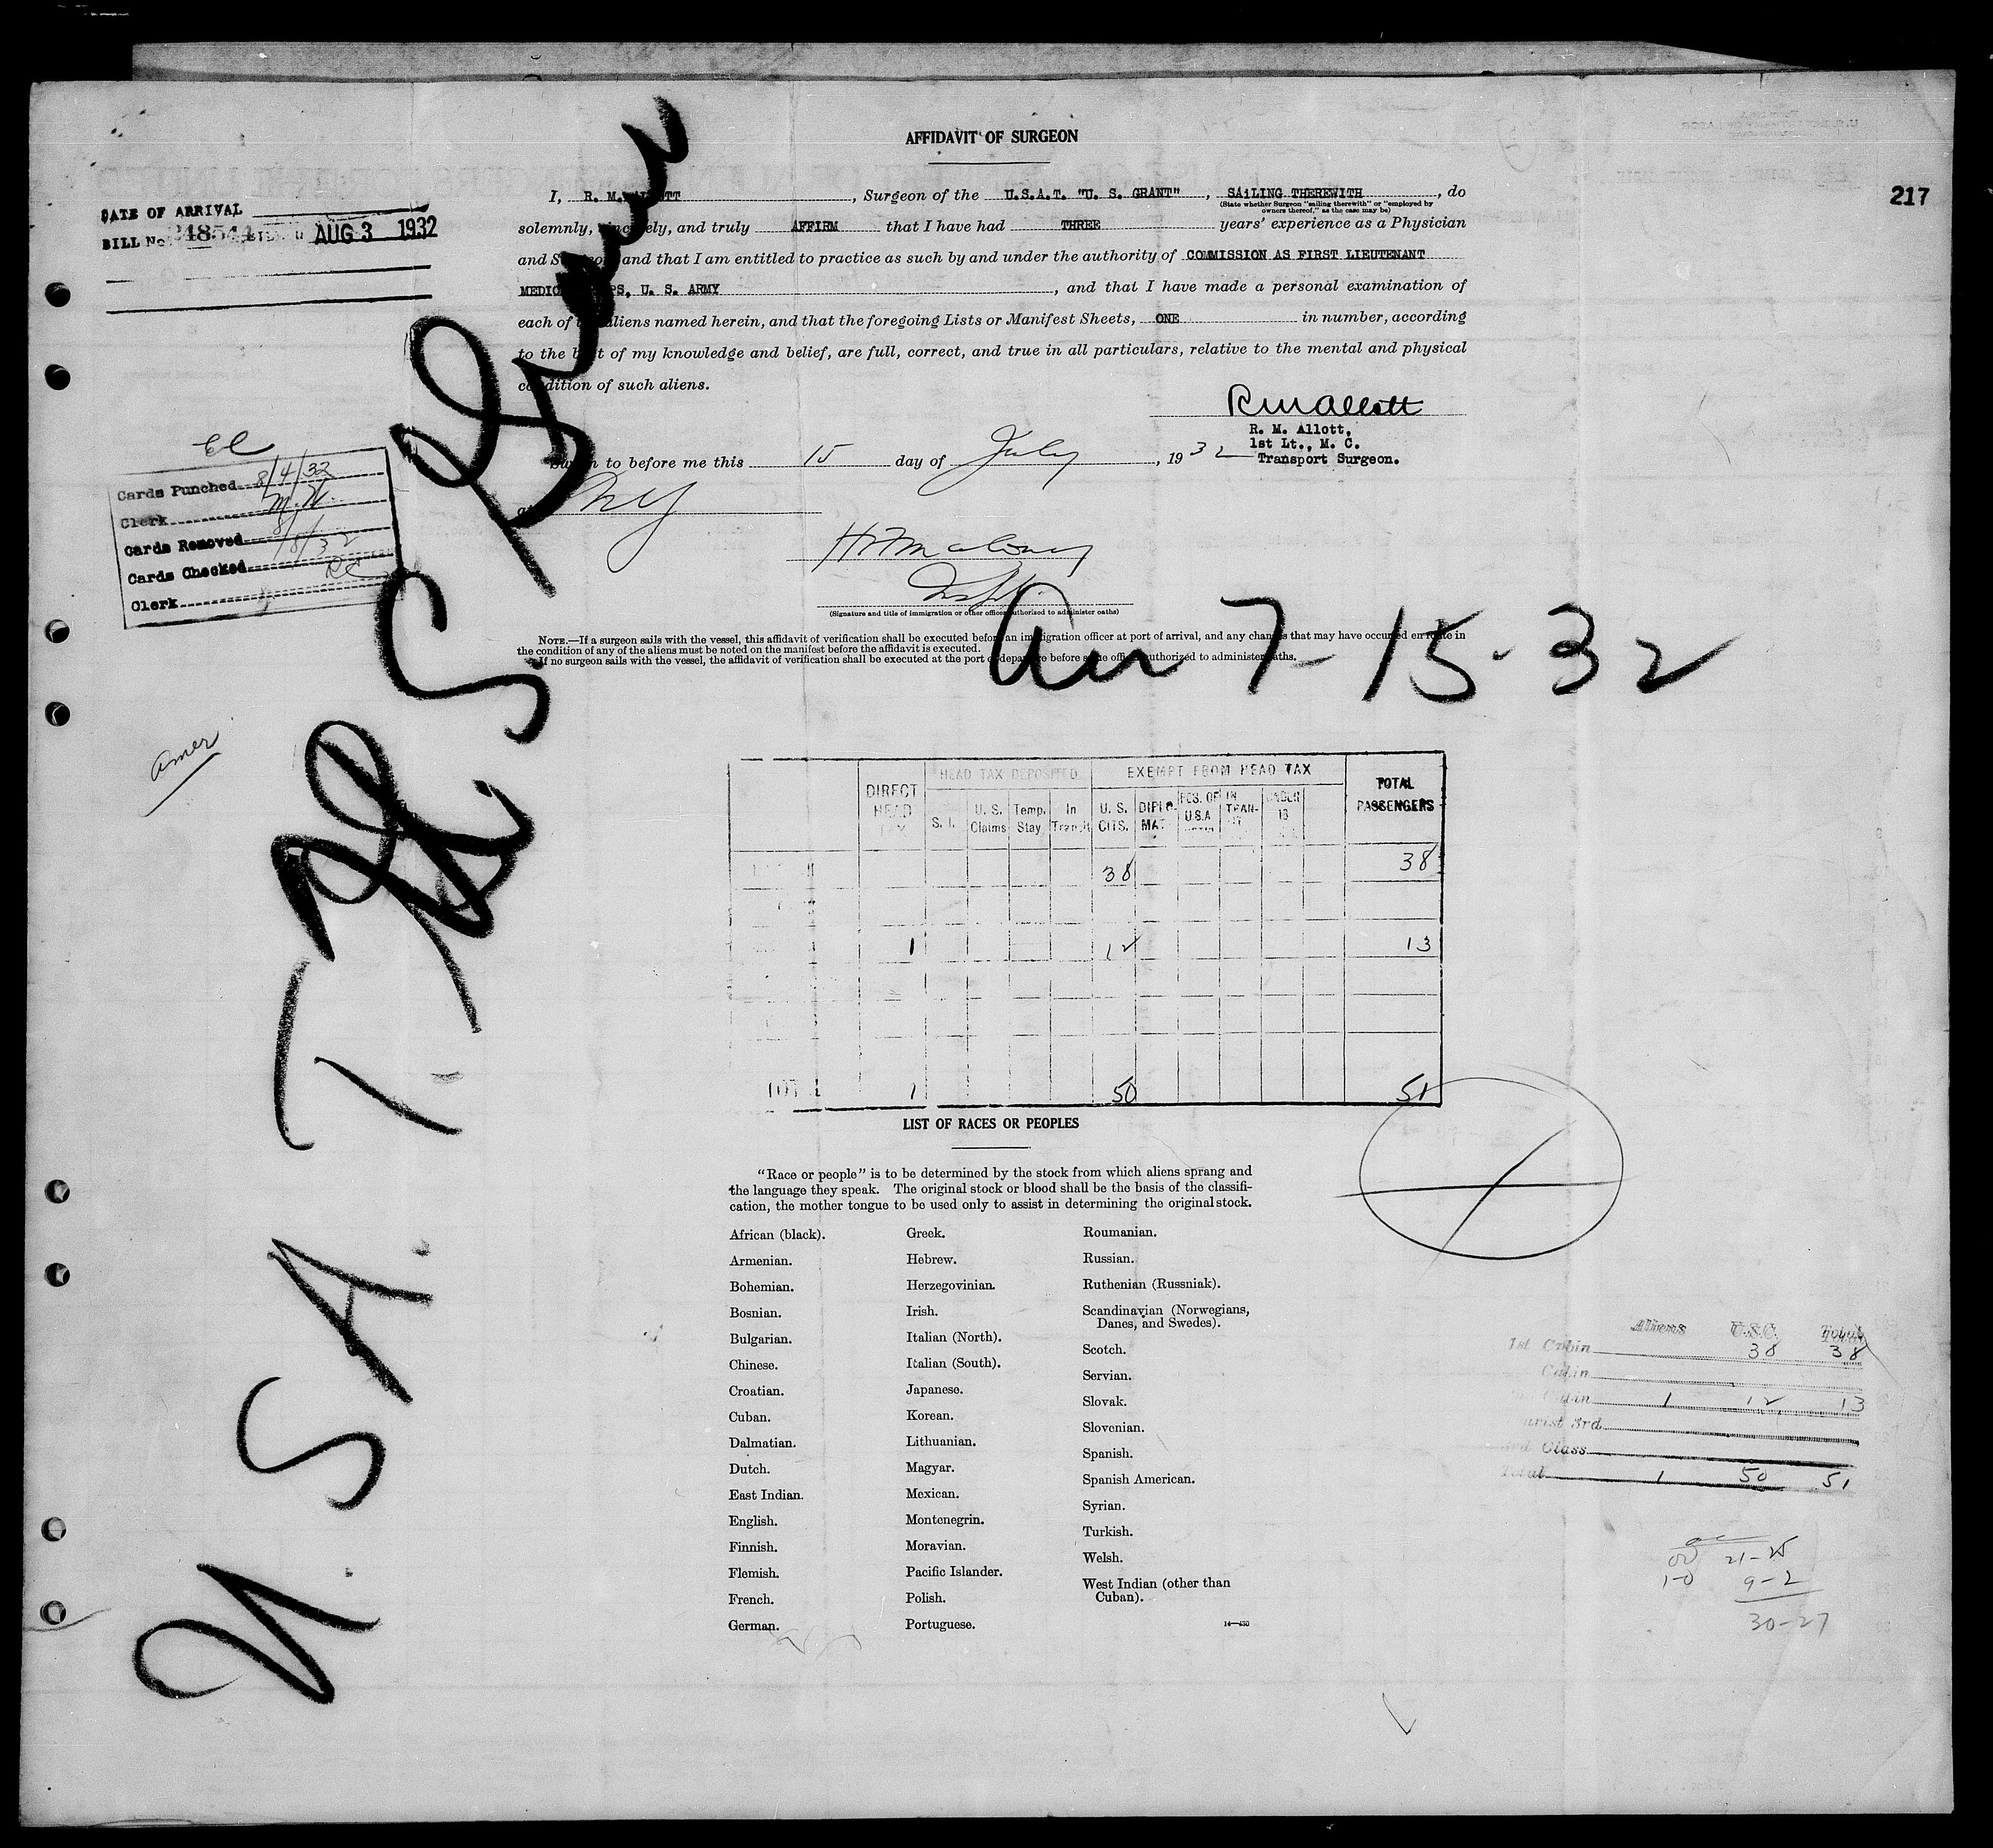 AFFIDAVIT OF SURGEON
217
I, R. M. ALLOTT, Surgeon of the U.S.A.T. "U. S. GRANT", SAILING THEREWITH, do
(State whether Surgeon "sailing therewith" or "employed by
owners thereof," as the case may be)
solemnly, sincerely, and truly AFFIRM that I have had THREE years' experience as a Physician
and Surgeon and that I am entitled to practice as such by and under the authority of COMMISSION AS FIRST LIEUTENANT
MEDICAL CORPS, U. S. ARMY, and that I have made a personal examination of
each of the aliens named herein, and that the foregoing Lists or Manifest Sheets, ONE in number, according
to the best of my knowledge and belief, are full, correct, and true in all particulars, relative to the mental and physical
condition of such aliens.
DATE OF ARRIVAL
BILL No. 248544 AUG 3 1932
RMAllott
R. M. Allott,
1st Lt., M. C.
Transport Surgeon.
Sworn to before me this 15 day of July, 1932
at NY
HFMaloney
(Signature and title of immigration or other officer authorized to administer oaths)
Cards Punched 8/4/32
Clerk M.H.
Cards Removed
Cards Checked
Clerk
NOTE.—If a surgeon sails with the vessel, this affidavit of verification shall be executed before an immigration officer at port of arrival, and any changes that may have occurred en route in
the condition of any of the aliens must be noted on the manifest before the affidavit is executed.
If no surgeon sails with the vessel, the affidavit of verification shall be executed at the port of departure before some officer authorized to administer oaths.
U. S. A. T. U. S. Grant
Arr 7-15-32
Amer
DIRECT HEAD TAX
HEAD TAX DEPOSITED
EXEMPT FROM HEAD TAX
TOTAL PASSENGERS
S. I. U. S. Claims Temp. Stay In Transit U. S. CITS. DIPLO-MAT RES. OF U.S.A IN TRAN- UNDER 16
38 38
1 12 13
TOTAL 1 50 51
LIST OF RACES OR PEOPLES
"Race or people" is to be determined by the stock from which aliens sprang and
the language they speak. The original stock or blood shall be the basis of the classifi-
cation, the mother tongue to be used only to assist in determining the original stock.
African (black).
Armenian.
Bohemian.
Bosnian.
Bulgarian.
Chinese.
Croatian.
Cuban.
Dalmatian.
Dutch.
East Indian.
English.
Finnish.
Flemish.
French.
German.
Greek.
Hebrew.
Herzegovinian.
Irish.
Italian (North).
Italian (South).
Japanese.
Korean.
Lithuanian.
Magyar.
Mexican.
Montenegrin.
Moravian.
Pacific Islander.
Polish.
Portuguese.
Roumanian.
Russian.
Ruthenian (Russniak).
Scandinavian (Norwegians,
Danes, and Swedes).
Scotch.
Servian.
Slovak.
Slovenian.
Spanish.
Spanish American.
Syrian.
Turkish.
Welsh.
West Indian (other than
Cuban).
14—430
Aliens U.S.C. Total
1st Cabin 38 38
Cabin
Cabin 1 12 13
Tourist 3rd
3rd Class
Total 1 50 51
21-25
1-0 9-2
30-27